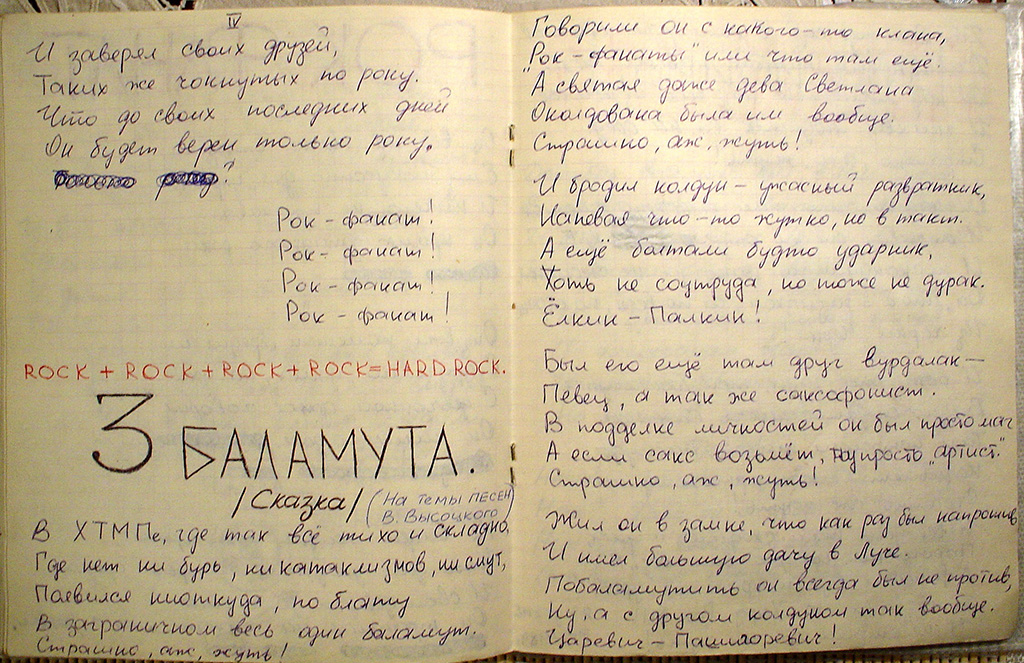 IV
И заверял своих друзей,
Таких же чокнутых по року.
Что до своих последних дней
Он будет верен только року.
Рок - фанат!
Рок - фанат!
Рок - фанат!
Рок - фанат!
ROCK + ROCK + ROCK + ROCK = HARD ROCK.
3 БАЛАМУТА.
/Сказка/ (На темы ПЕСЕН
В. Высоцкого)
В ХТМПе, где так всё тихо и складно,
Где нет ни бурь, ни катаклизмов, ни смут,
Появился ниоткуда, по блату
В заграничном весь один баламут.
Страшно, аж, жуть!
Говорили он с какого-то клана,
"Рок-фанаты" или что там ещё.
А святая даже дева Светлана
Околдована была им вообще.
Страшно, аж, жуть!
И бродил колдун - ужасный развратник,
Напевая что-то жутко, но в такт.
А ещё болтали будто ударник,
Хоть не соцтруда, но тоже не дурак.
Ёлкин - Палкин!
Был его ещё там друг вурдалак —
Певец, а так же саксофонист.
В подделке личностей он был просто маг
А если сакс возьмёт, ну просто "артист."
Страшно, аж, жуть!
Жил он в замке, что как раз был напротив,
И имел большую дачу в Луче.
Побаламутить он всегда был не против,
Ну, а с другом колдуном так вообще.
Царевич-